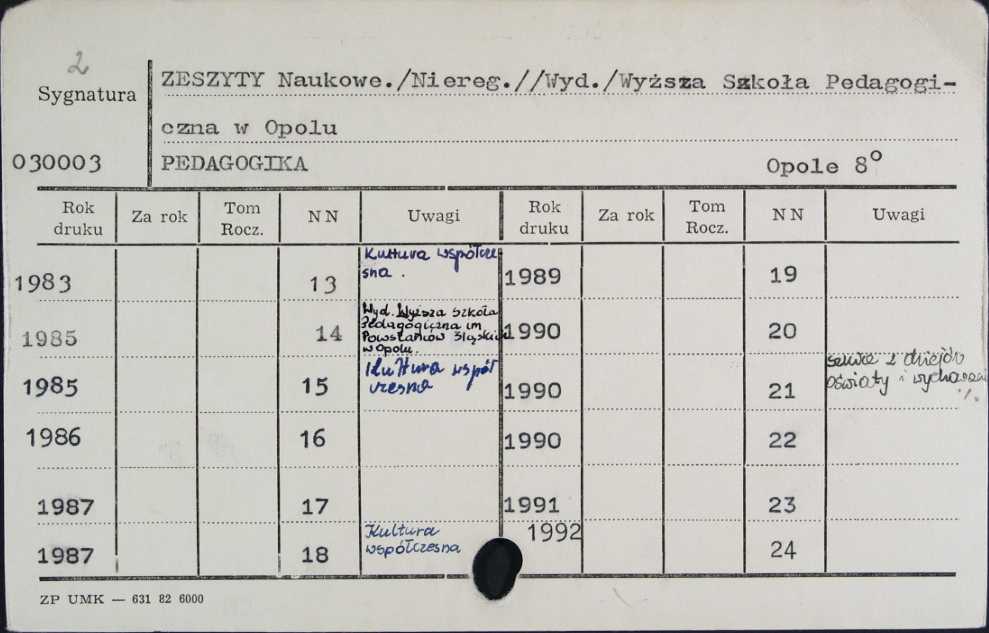 2
Sygnatura
ZESZYTY Naukowe./Niereg.//Wyd./Wyższa Szkoła Pedagogi-
czna w Opolu
030003
PEDAGOGIKA
Opole 8°
Rok druku Za rok Tom Rocz. NN Uwagi Rok druku Za rok Tom Rocz. NN Uwagi
1983 13 Kultura współcze
sna .
1989 19
1985 14 Wyd. Wyższa Szkoła
Pedagogiczna im
Powstańców Śląskich
w Opolu.
1990 20
1985 15 Kultura współ
czesna
1990 21 z dziejów
oświaty i
1986 16 1990 22
1987 17 1991 23
1987 18 Kultura
współczesna
1992 24
ZP UMK — 631 82 6000